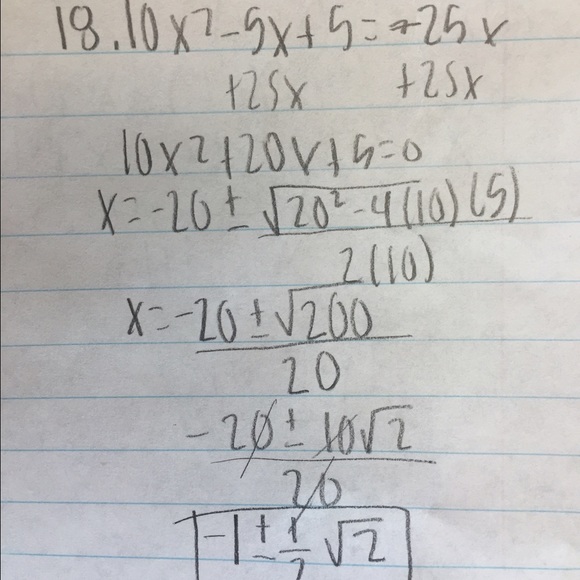 18. 10x²-5x+5=-25x
+25x +25x
10x²+20x+5=0
x=-20±√20²-4(10)(5)
2(10)
x=-20±√200
20
-20±10√2
20
-1±1/2√2